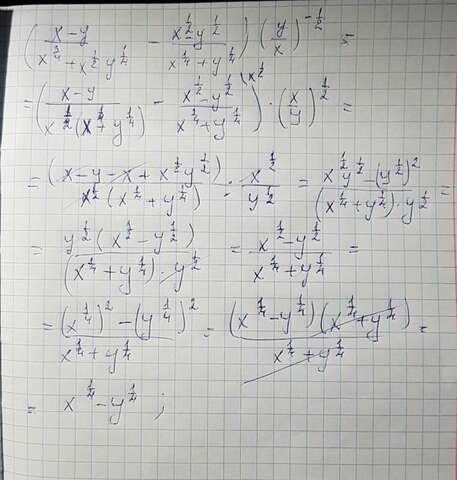 (x-y / x^{3/4} + x^{1/2} y^{1/4} - x^{1/2} - y^{1/2} / x^{1/4} + y^{1/4}) (y/x)^{-1/2} =
= (x-y / x^{1/2} (x^{1/4} + y^{1/4}) - x^{1/2} - y^{1/2} / x^{1/4} + y^{1/4}) (x^{1/2} · (x/y)^{1/2} =
= (x - y - x + x^{1/2} y^{1/2}) / x^{1/2} (x^{1/4} + y^{1/4}) · x^{1/2} / y^{1/2} = x^{1/2} y^{1/2} - (y^{1/2})^2 / (x^{1/4} + y^{1/4}) · y^{1/2} =
= y^{1/2} (x^{1/2} - y^{1/2}) / (x^{1/4} + y^{1/4}) · y^{1/2} = x^{1/2} - y^{1/2} / x^{1/4} + y^{1/4} =
= (x^{1/4})^2 - (y^{1/4})^2 / x^{1/4} + y^{1/4} = (x^{1/4} - y^{1/4}) (x^{1/4} + y^{1/4}) / x^{1/4} + y^{1/4} =
= x^{1/4} - y^{1/4} ;